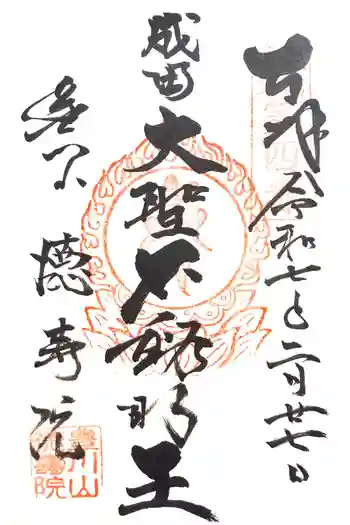 奉拝 令和七年二月廿七日
成田
大聖不動明王
豊川
徳寿院
豊川山
徳壽院